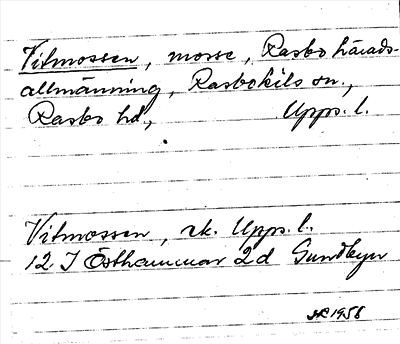 Vitmossen, mosse, Rasbo härads-
allmänning, Rasbokils sn.,
Rasbo hd., Upps. l.
Vitmossen, ek. Upps. l.
12 I Östhammar 2d Gundbyn
1958